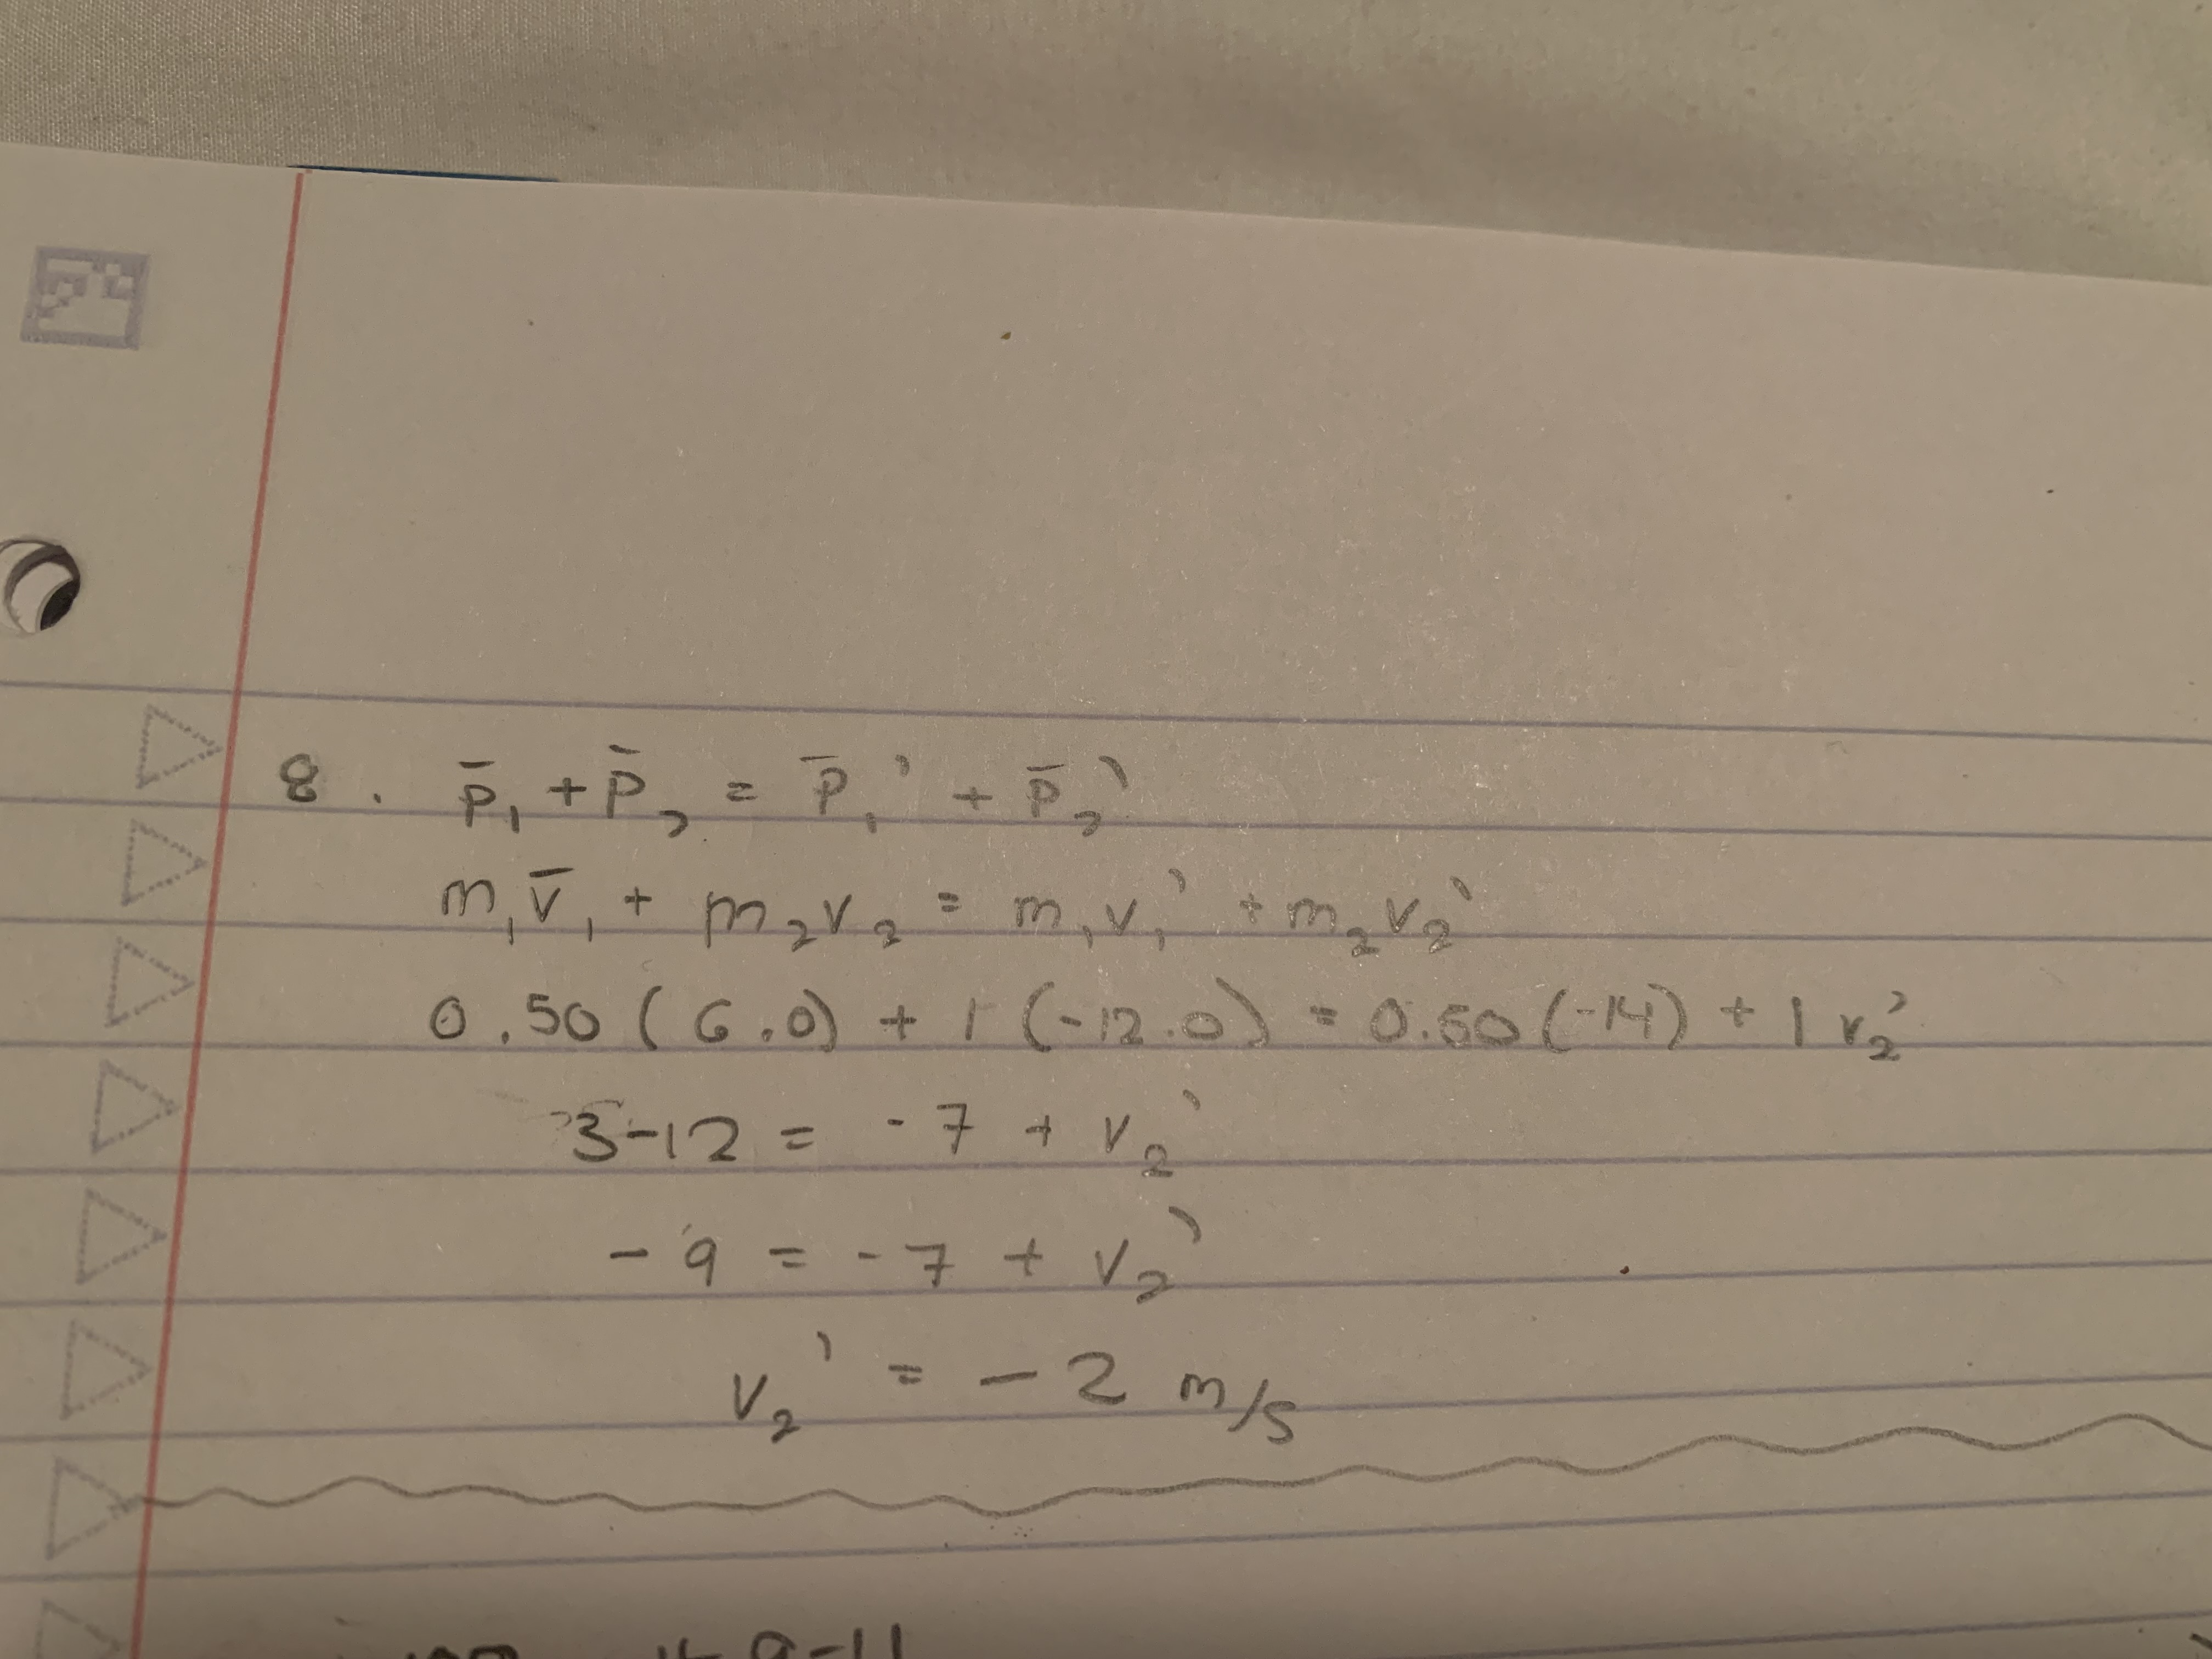 8. p̄₁ + p̄₂ = p̄₁' + p̄₂'
m₁v̄₁ + m₂v₂ = m₁v₁' + m₂v₂'
0.50(6.0) + 1(-12.0) = 0.50(-14) + 1v₂'
3-12 = -7 + v₂'
-9 = -7 + v₂'
v₂' = -2 m/s